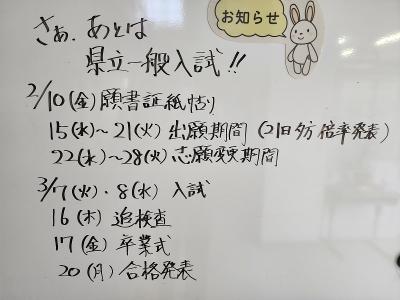 お知らせ
さぁ、あとは
県立一般入試!!
2/10(金)願書証紙貼り
15(水)～21(火)出願期間(21日夕方倍率発表)
22(水)～28(火)志願変更期間
3/7(火)・8(水) 入試
16(木) 追検査
17(金) 卒業式
20(月) 合格発表